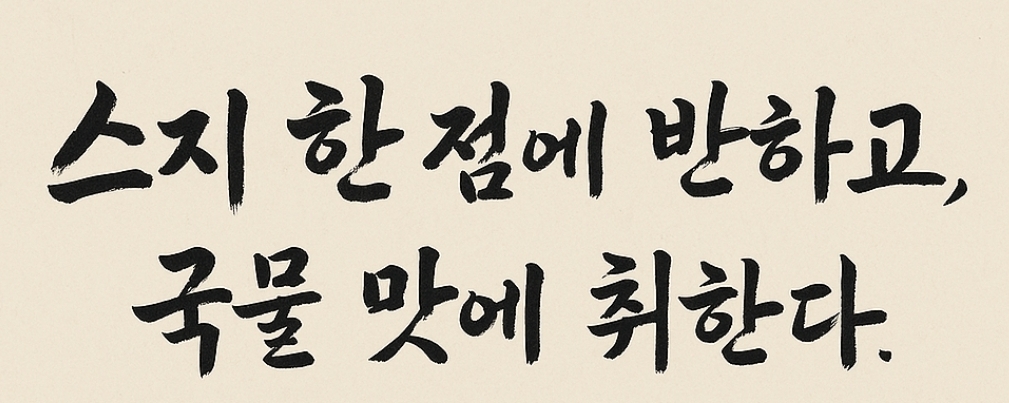 스지 한 점에 반하고,
국물 맛에 취한다.